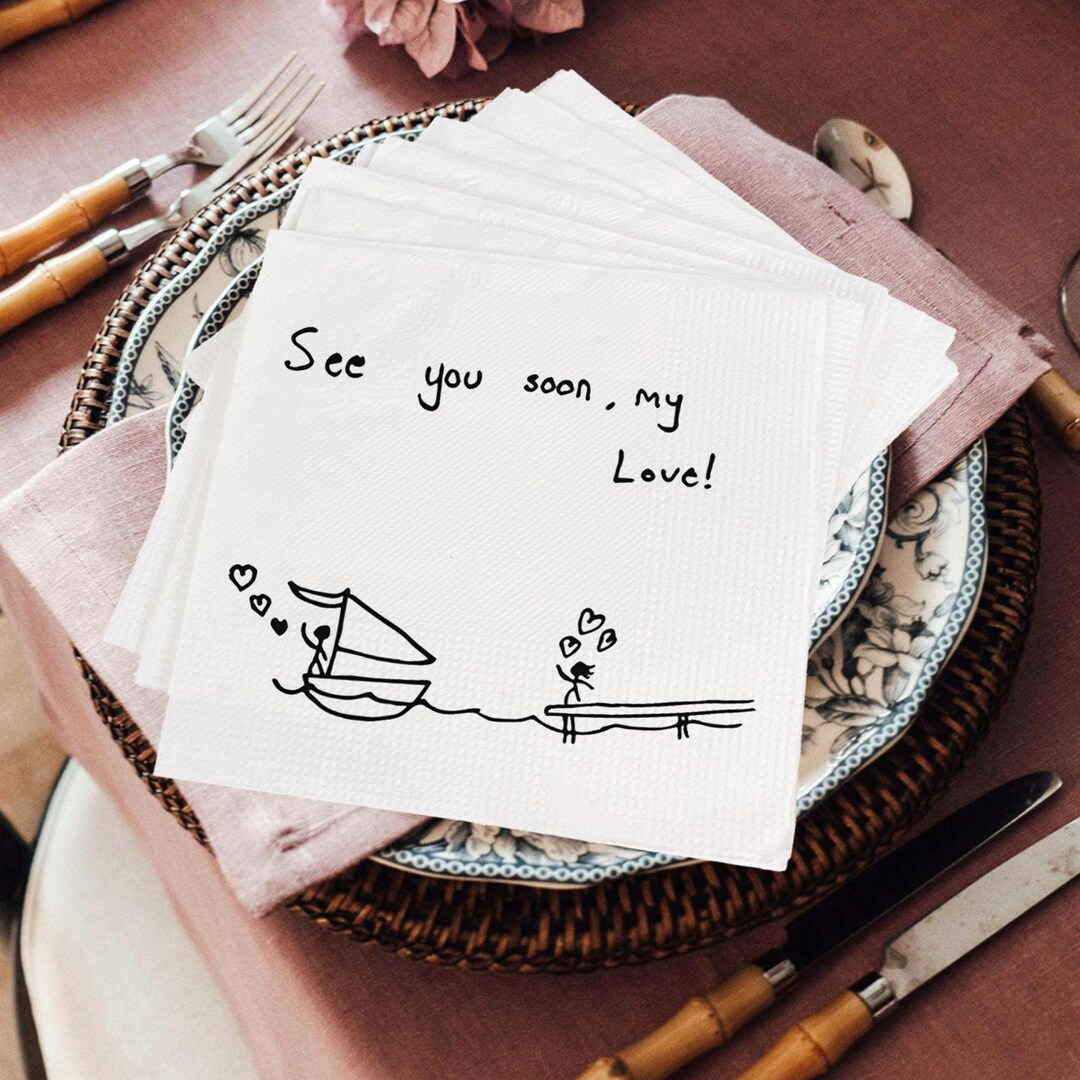 See you soon, my
Love!